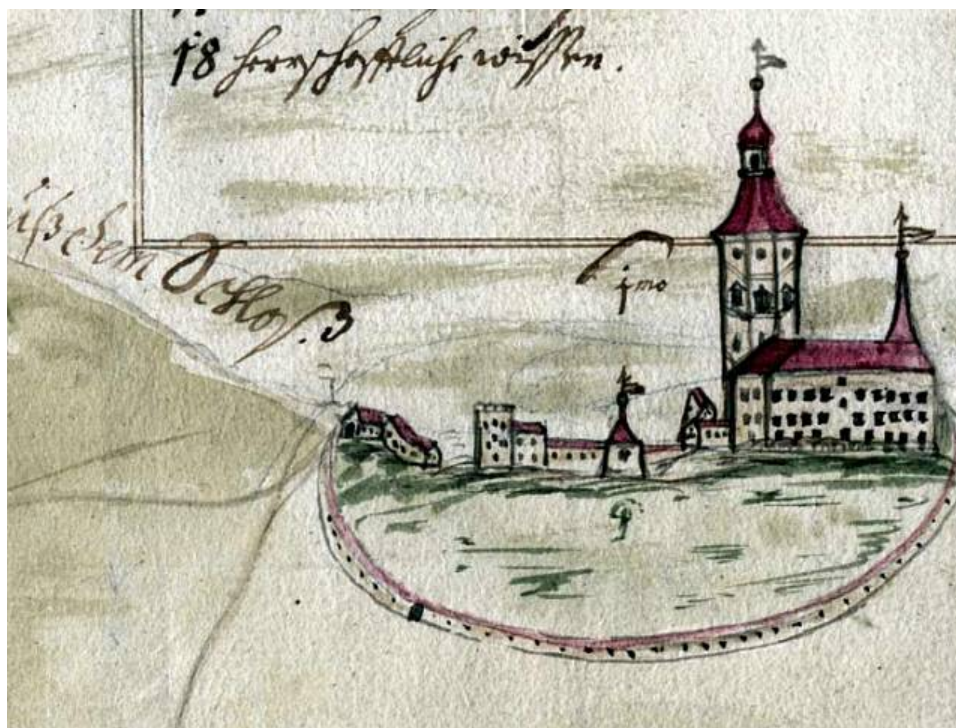 18 herrschafftliche wissen.
Schloß.
jmo